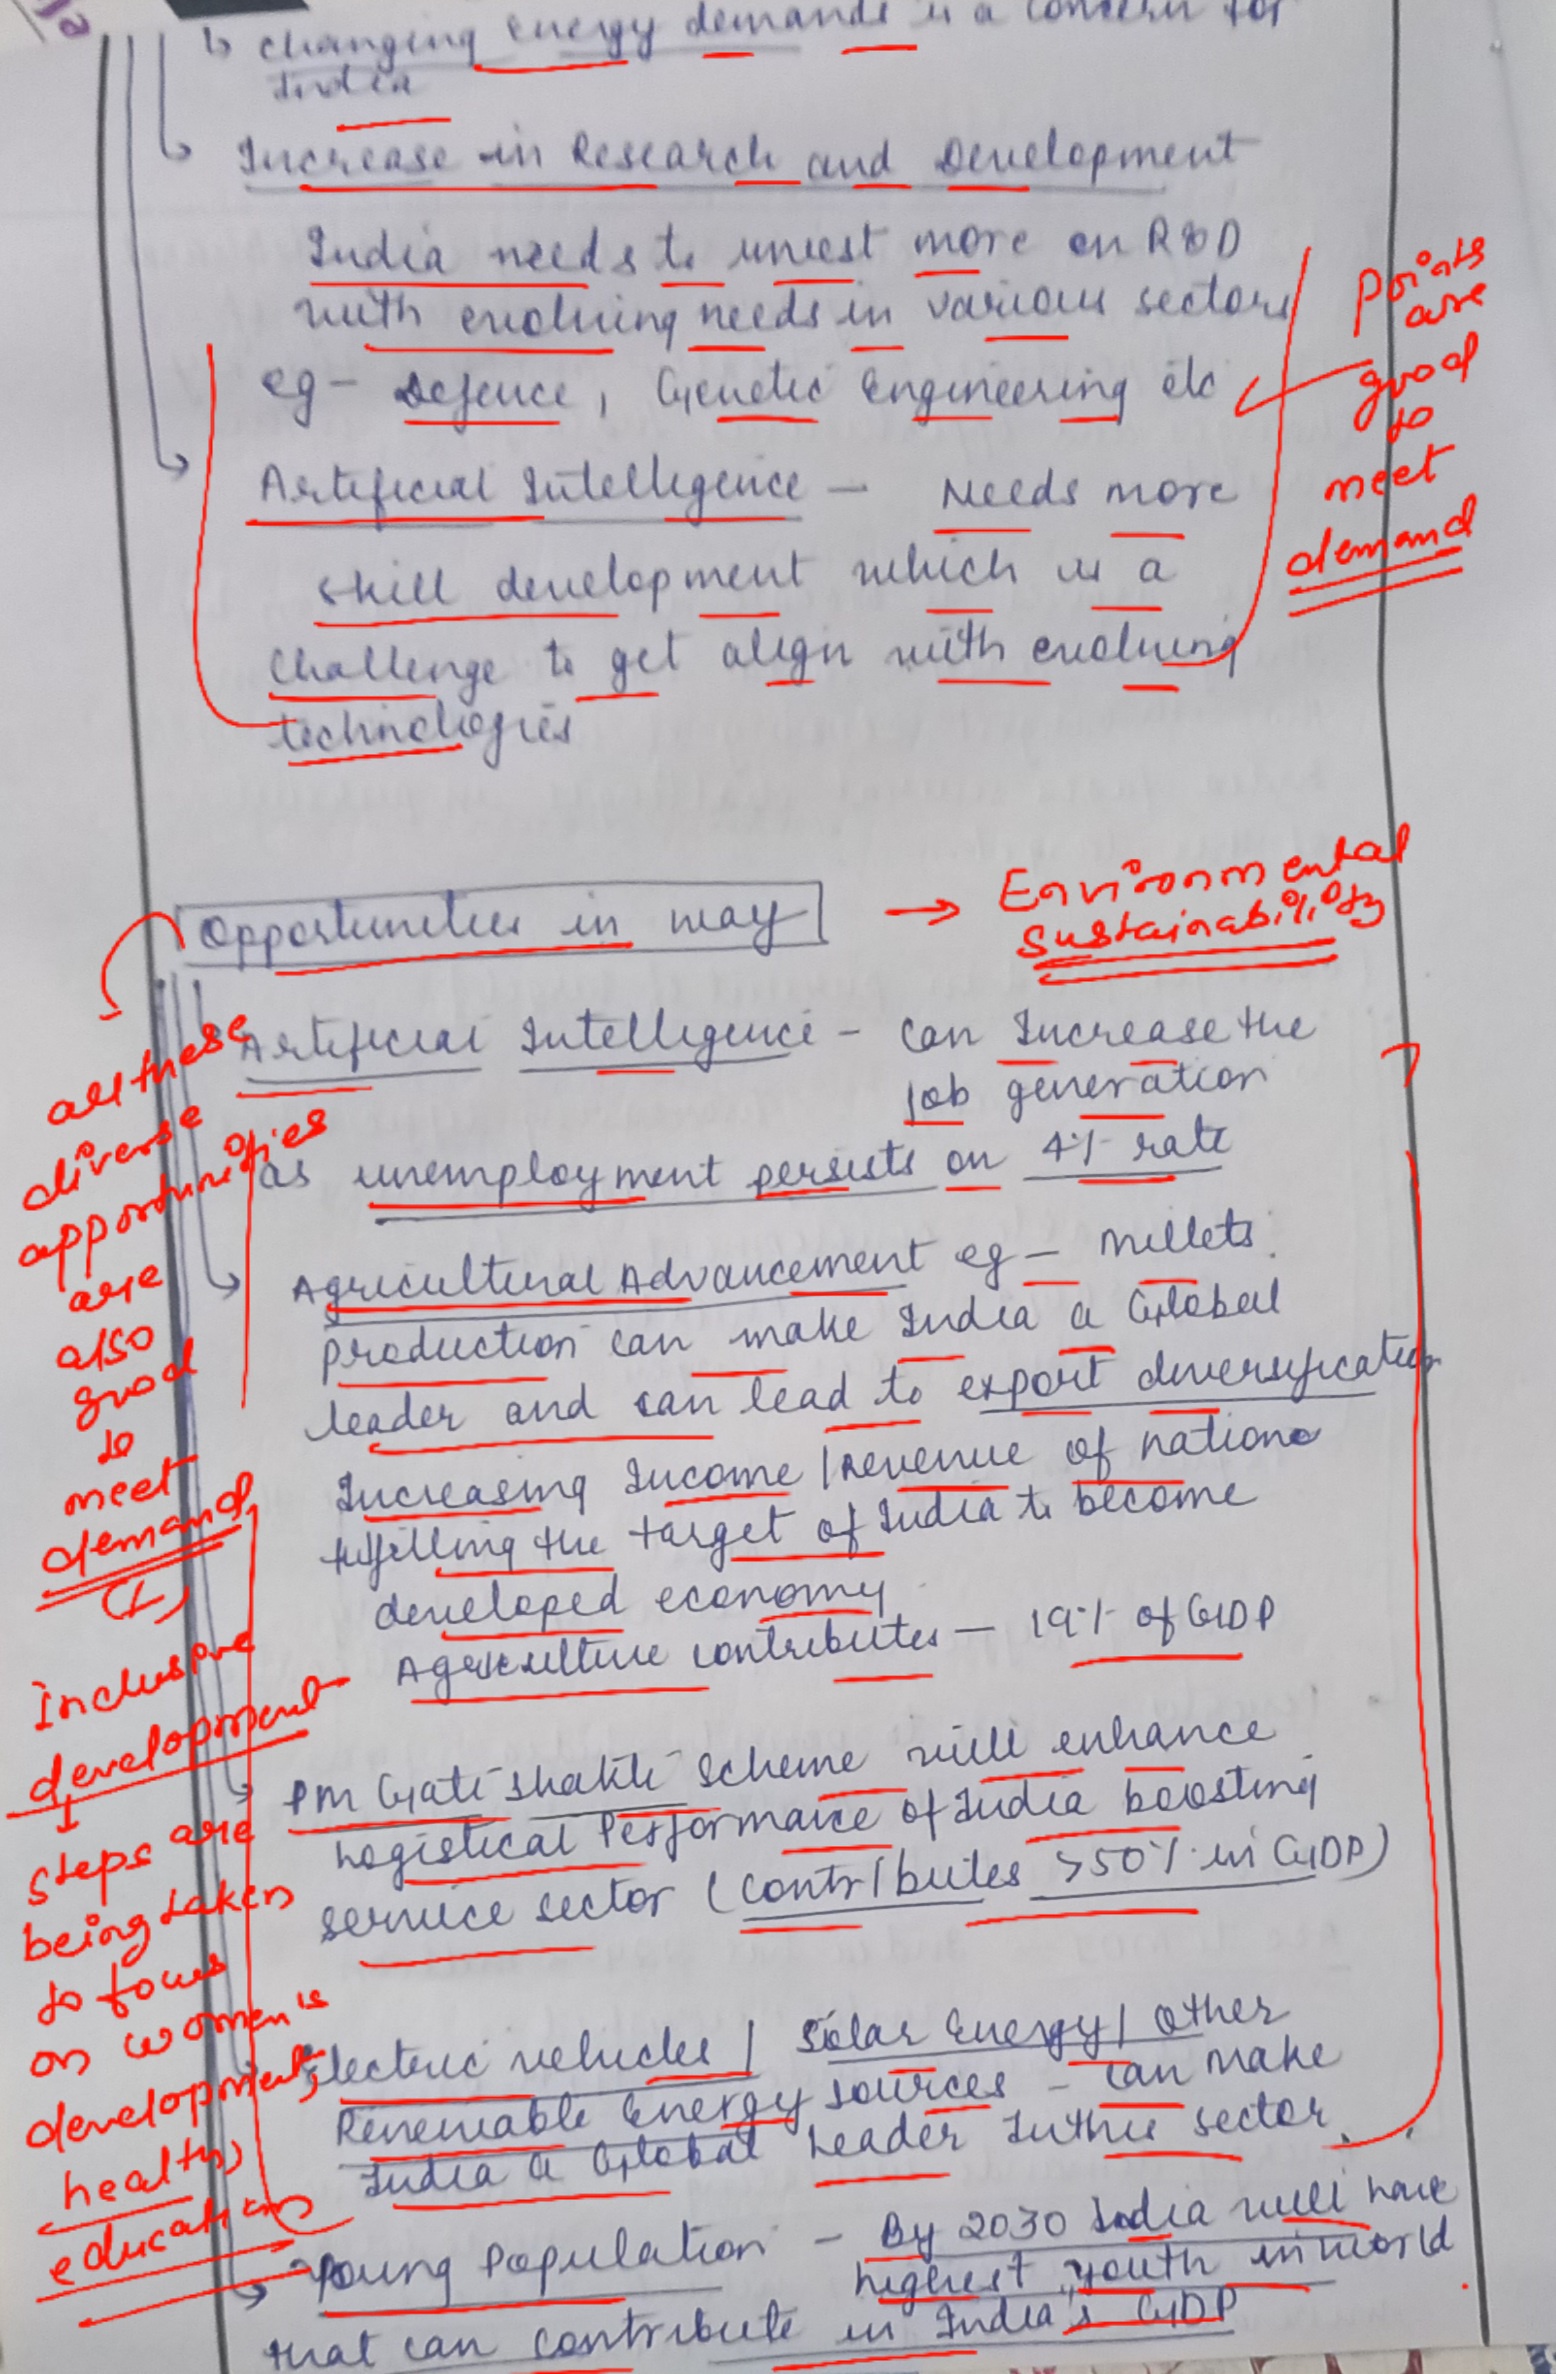 changing energy demands is a concern for
India
Increase in Research and Development
India needs to invest more on R&D
with evolving needs in various sectors
eg - Defence, Genetic Engineering etc
Points
are
good
to
meet
demand
Artificial Intelligence - Needs more
skill development which is a
challenge to get align with evolving
technologies
Opportunities in way
→ Environmental
sustainability
Artificial Intelligence - can Increase the
job generation
as unemployment persists on 4% rate
all these
diverse
opportunities
are
also
good
to
meet
demand
Agricultural Advancement eg - Millets
production can make India a Global
leader and can lead to export diversification
Increasing Income / revenue of nation
fulfilling the target of India to become
developed economy
Agriculture contributes - 19% of GDP
Inclusive
development
steps are
being taken
to focus
on women's
development,
health,
education
PM Gati Shakti Scheme will enhance
Logistical Performance of India boosting
service sector (contributes >50% in GDP)
Electric vehicles / Solar Energy / other
Renewable Energy sources - can make
India a Global Leader In this sector.
Young Population - By 2030 India will have
highest youth in world
that can contribute in India's GDP